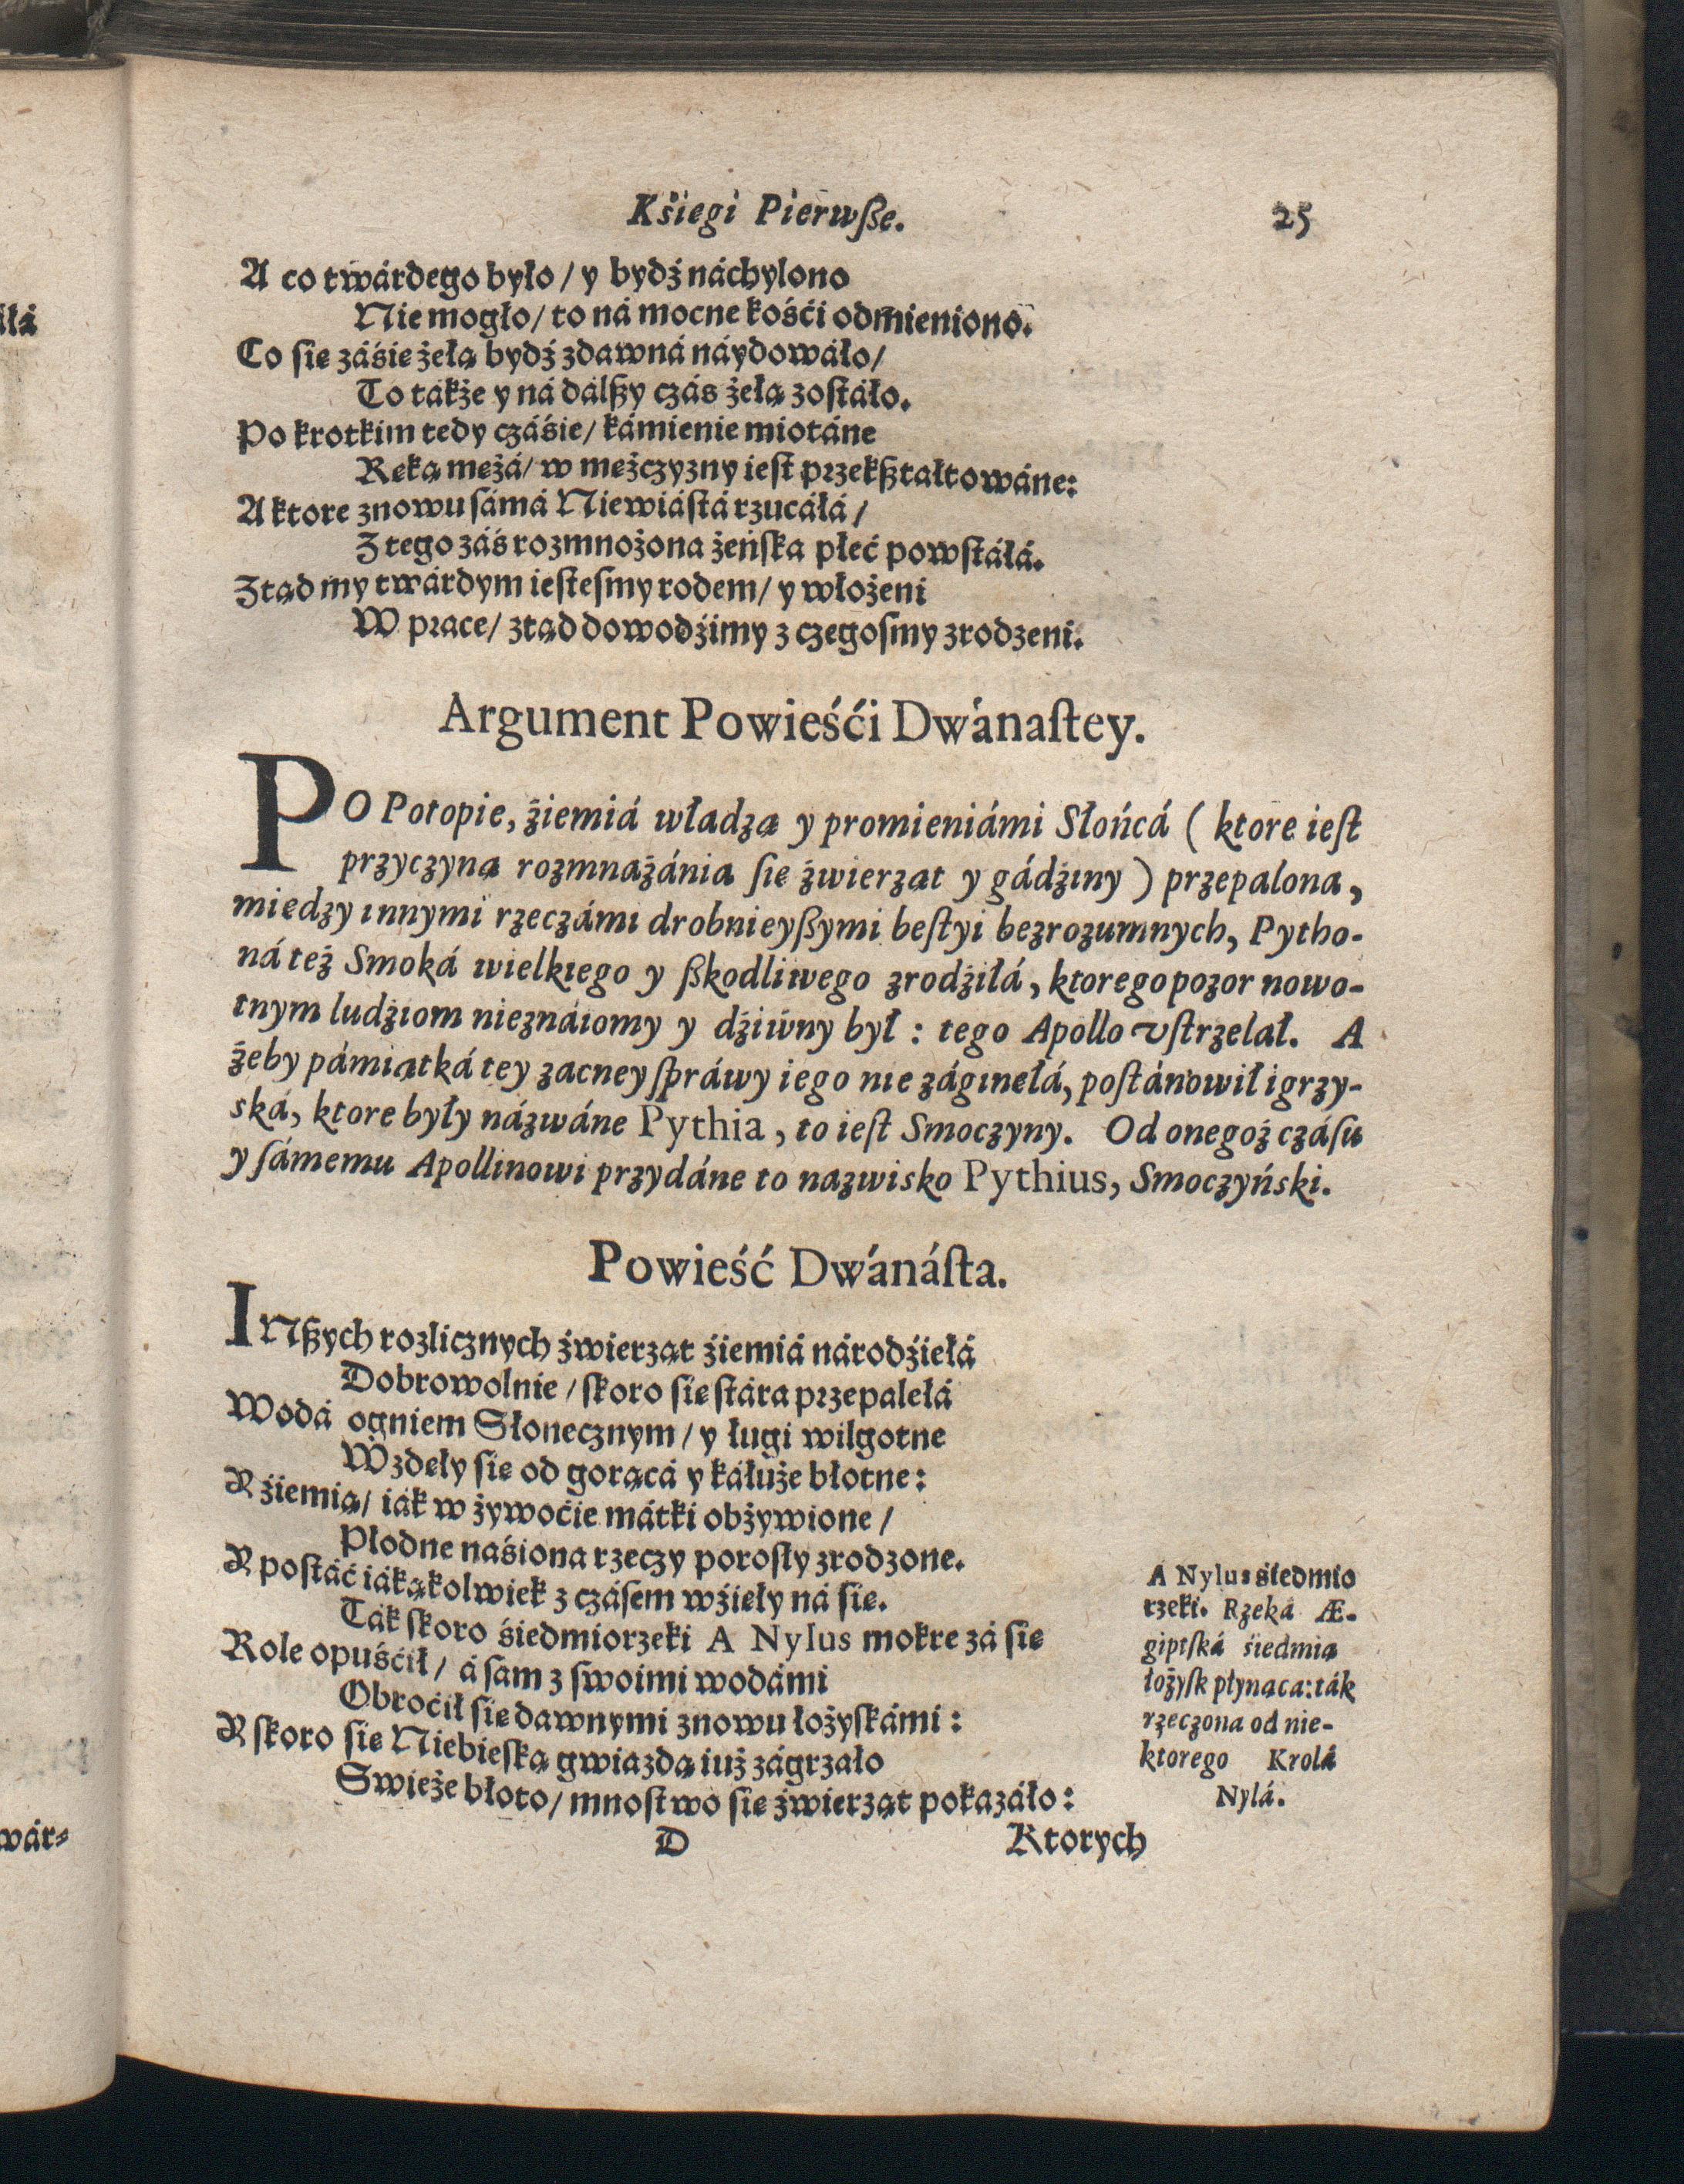 Kśiegi Pierwße. 25
A co twárdego było / y bydź náchylono
Nie mogło / to ná mocne kośći odmieniono.
Co ſie záśie żełą bydź zdawná náydowáło /
To tákże y ná dálßy czás żełą zoſtáło.
Po krotkim tedy czáśie / kámienie miotáne
Ręką mężá / w mężczyzny ieſt przekßtałtowáne:
A ktore znowu ſámá Niewiáſtá rzucáłá /
Z tego záś rozmnożona żeńſka płeć powſtáłá.
Ztąd my twárdym ieſteſmy rodem / y włożeni
W prace / ztąd dowodźimy z czegoſmy zrodzeni.
Argument Powieśći Dwánaſtey.
PO Potopie, źiemiá władzą y promieniámi Słońcá ( ktore ieſt
przyczyną rozmnażánia ſię źwierzat y gádźiny ) przepalona,
miedzy innymi rzeczámi drobnieyßymi beſtyi bezrozumnych, Pytho-
ná też Smoká wielkiego y ßkodliwego zrodźiłá, ktorego pozor nowo-
tnym ludźiom nieznáiomy y dźiwny był : tego Apollo vſtrzelał. A
żeby pámiątká tey zacney ſpráwy iego nie záginełá, poſtánowił igrzy-
ská, ktore były názwáne Pythia, to ieſt Smoczyny. Od onegoż czáſu
y ſámemu Apollinowi przydáne to nazwisko Pythius, Smoczyński.
Powieść Dwánáſta.
INßych rozlicznych źwierząt źiemiá národźiełá
Dobrowolnie / ſkoro ſie ſtára przepalełá
Wodá ogniem Słonecznym / y ługi wilgotne
Wzdęły ſie od gorącá y káłuże błotne:
Y źiemią / iák w żywoćie mátki obżywione /
Płodne naśiona rzeczy poroſły zrodzone.
Y poſtáć iákąkolwiek z czáſem wźięły ná ſie.
Ták ſkoro śiedmiorzeki A Nylus mokre zá ſie
Role opuśćił / á ſam z ſwoimi wodámi
Obroćił ſie dawnymi znowu łożyſkámi :
Y ſkoro ſie Niebieſką gwiazdą iuż zágrzało
Swieże błoto / mnoſtwo ſie źwierząt pokazáło :
A Nylus śiedmio
rzeki. Rzeká Æ-
giptſká śiedmią
łożyſk płynąca: ták
rzeczona od nie-
ktorego Krolá
Nylá.
D Ktorych